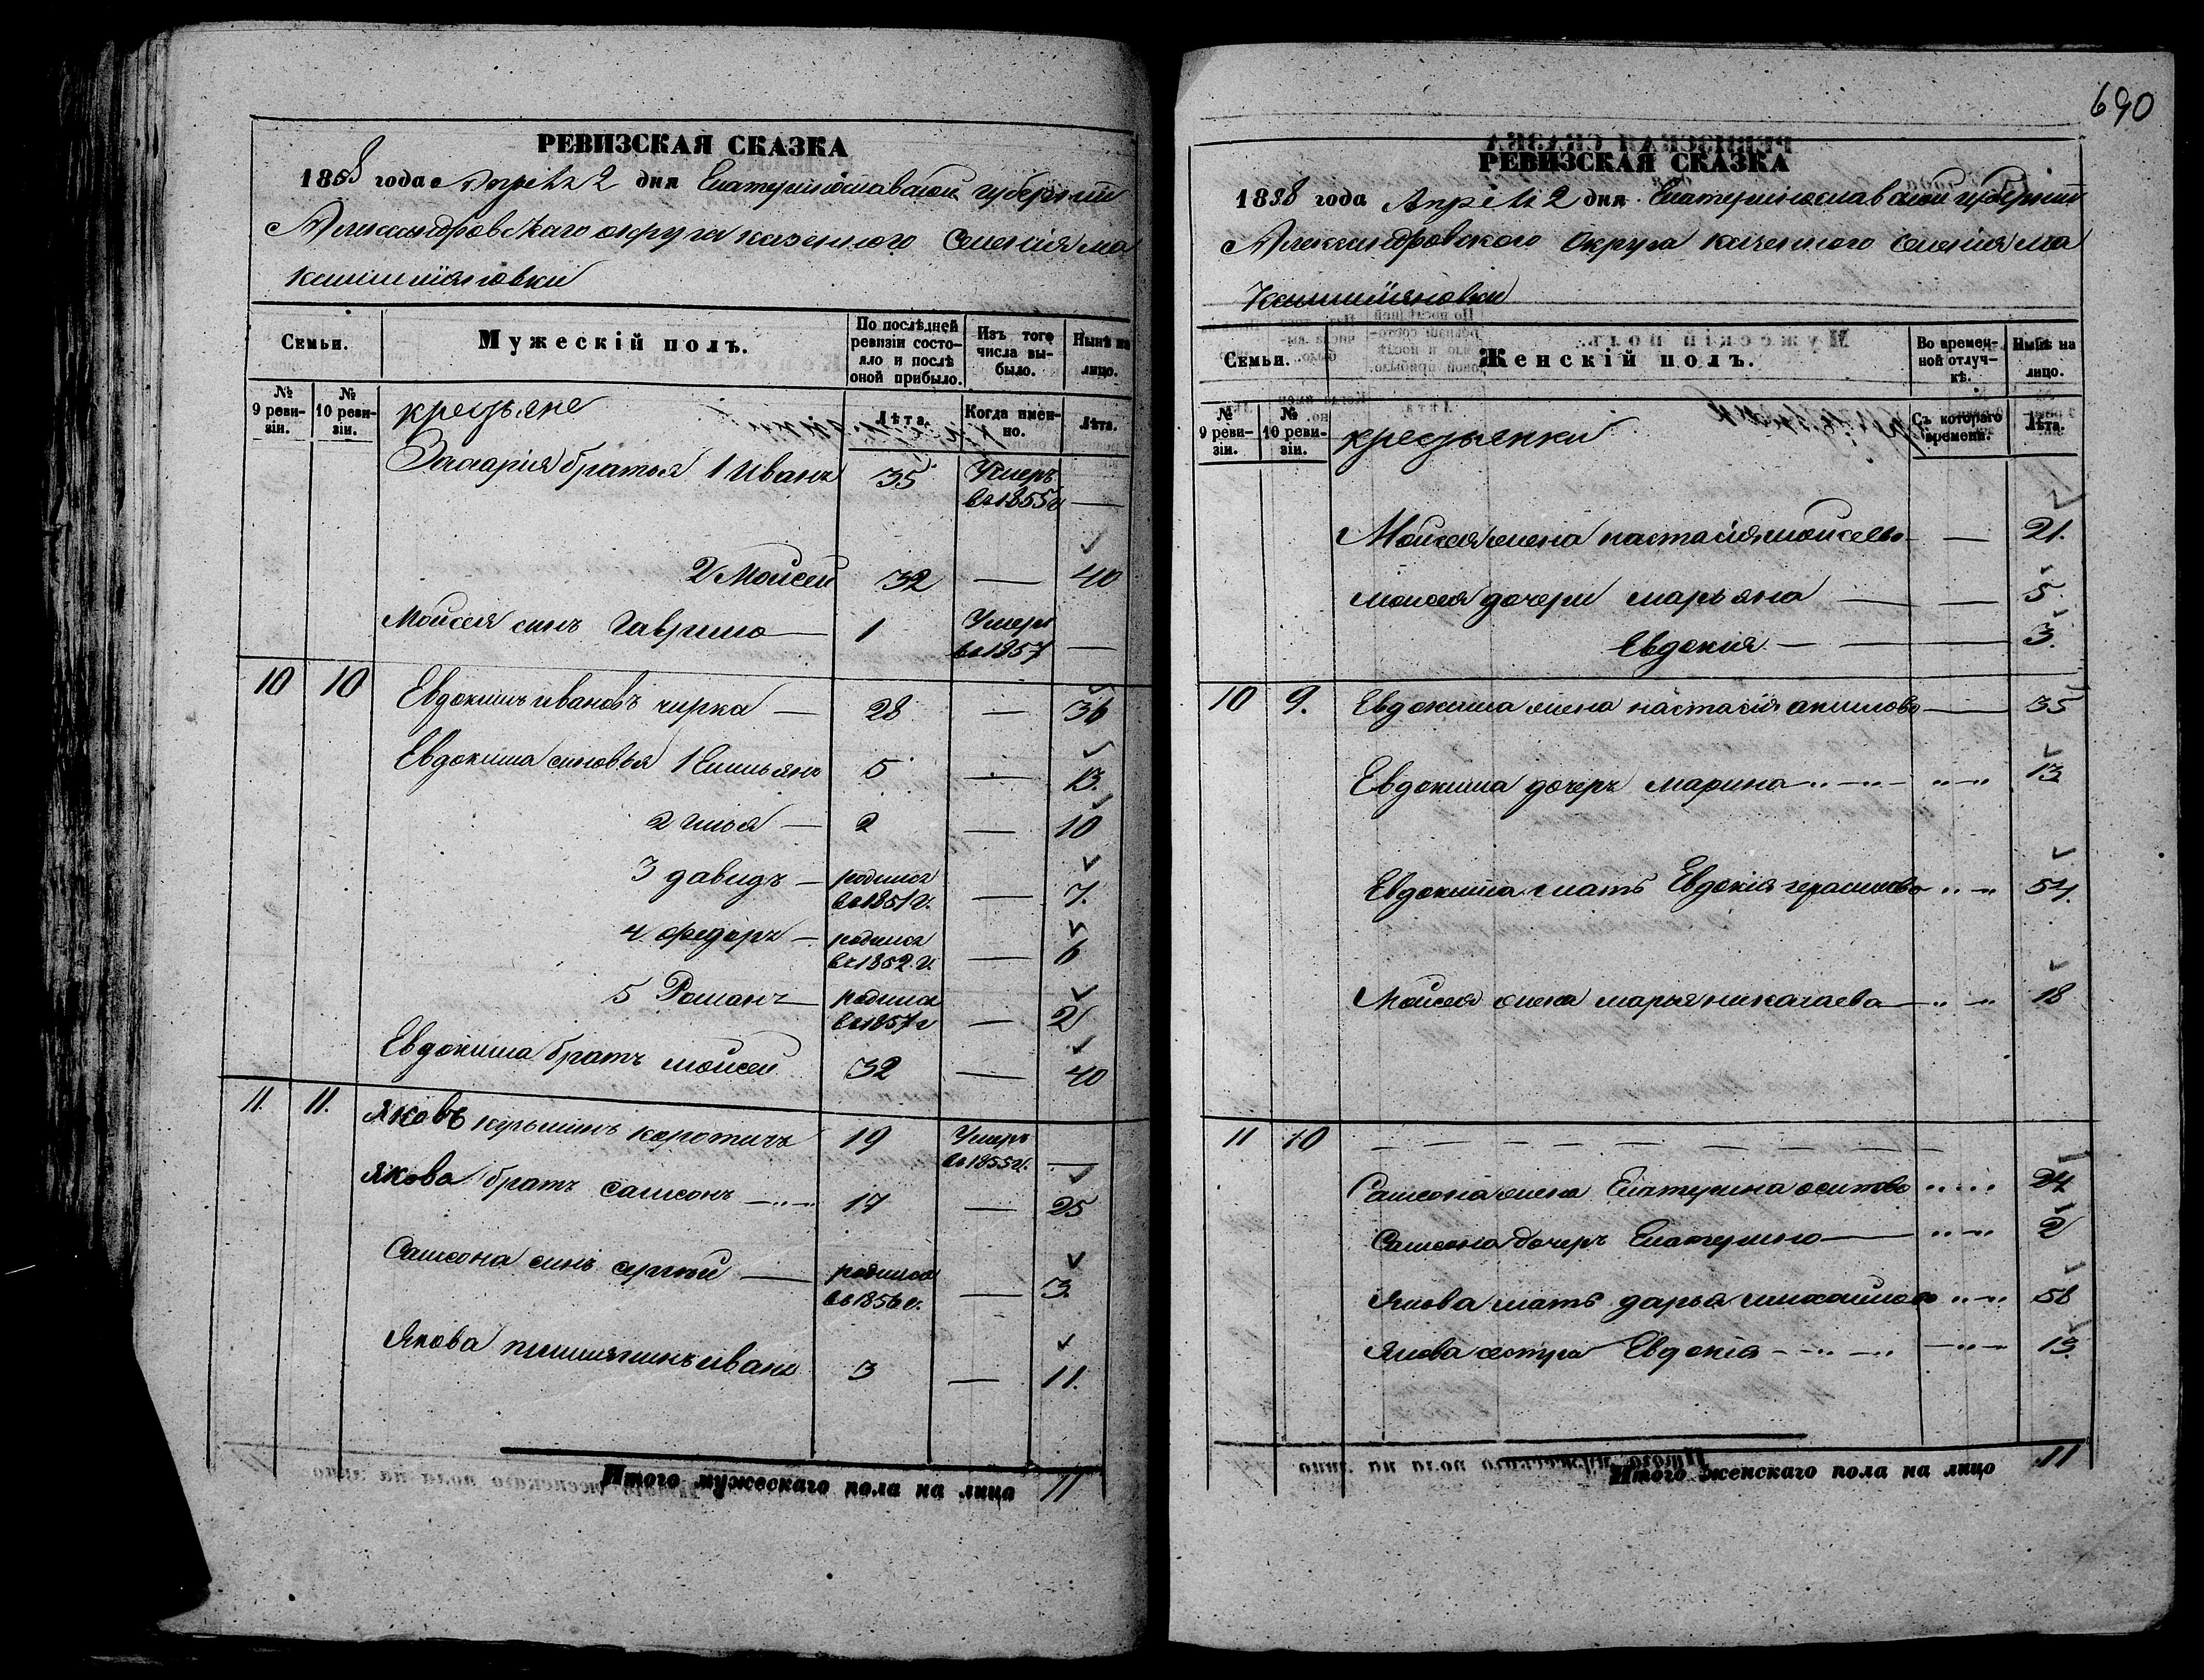 РЕВИЗСКАЯ СКАЗКА
1858 года Апреля 2 дня Екатеринославской губернии
Александровскаго округа казенного Селения Ма
ксимильяновки
Семьи.
Мужескій полъ.
По послѣдней ревизіи состояло и послѣ оной прибыло.
Изъ того числа выбыло.
Нынѣ на лицо.
№ 9 ревизіи.
№ 10 ревизіи.
крестьяне
Лѣта.
Когда именно.
Лѣта.
Захария братья 1 Иванъ 35 Умеръ
въ 1855 г —
2 Моисей 32 — 40
Моисея синъ Гаврило — 1 Умеръ
въ 1857 —
10 10 Евдокимъ ивановъ чирка — 28 — 36
Евдокима синовья 1 Емильянъ 5 — 13.
2 илья — 2 — 10
3 давидъ — родился
въ 1851 г. — 7.
4 федоръ — родился
въ 1852. г. — 6
5 Романъ — родился
въ 1857 г — 2
Евдокима братъ моисей 32 — 40
11. 11. Яковъ кузьминъ коротичъ 19 Умеръ
въ 1855 г. —
Якова братъ самсонъ 17 — 25
Самсона синъ сергей — родился
въ 1856 г. — 3.
Якова племянникъ иванъ 3 — 11.
Итого мужескаго пола на лицо 11
690
РЕВИЗСКАЯ СКАЗКА
1858 года Апреля 2 дня Екатеринославской губернии
Александровского округа казенного селения Ма
ксимильяновки
Семьи.
Женскій полъ.
Во временной отлучкѣ.
Нынѣ на лицо.
№ 9 ревизіи.
№ 10 ревизіи.
крестьянки
Съ котораго времени.
Лѣта.
Моисея жена настасия моисеева — 21.
моисея дочери марьяна — — 5
Евдокия — — 3.
10 9. Евдокима жена настасия акимова — 35
Евдокима дочеръ марина 13
Евдокима мать Евдокия герасимова 54.
Моисея жена марья николаева 18
11 10 — — — — — — — —
Самсона жена Екатерина осипова 24
Самсона дочеръ Екатерина — 2
Якова мать дарья михайлова 58
Якова сестра Евдокия 13.
Итого женскаго пола на лицо 11